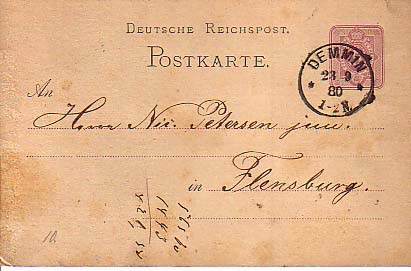 DEUTSCHE REICHSPOST.
POSTKARTE.
DEMMIN
23 9
80
1-2N.
An
Herrn Nic. Petersen jun.
in Flensburg.